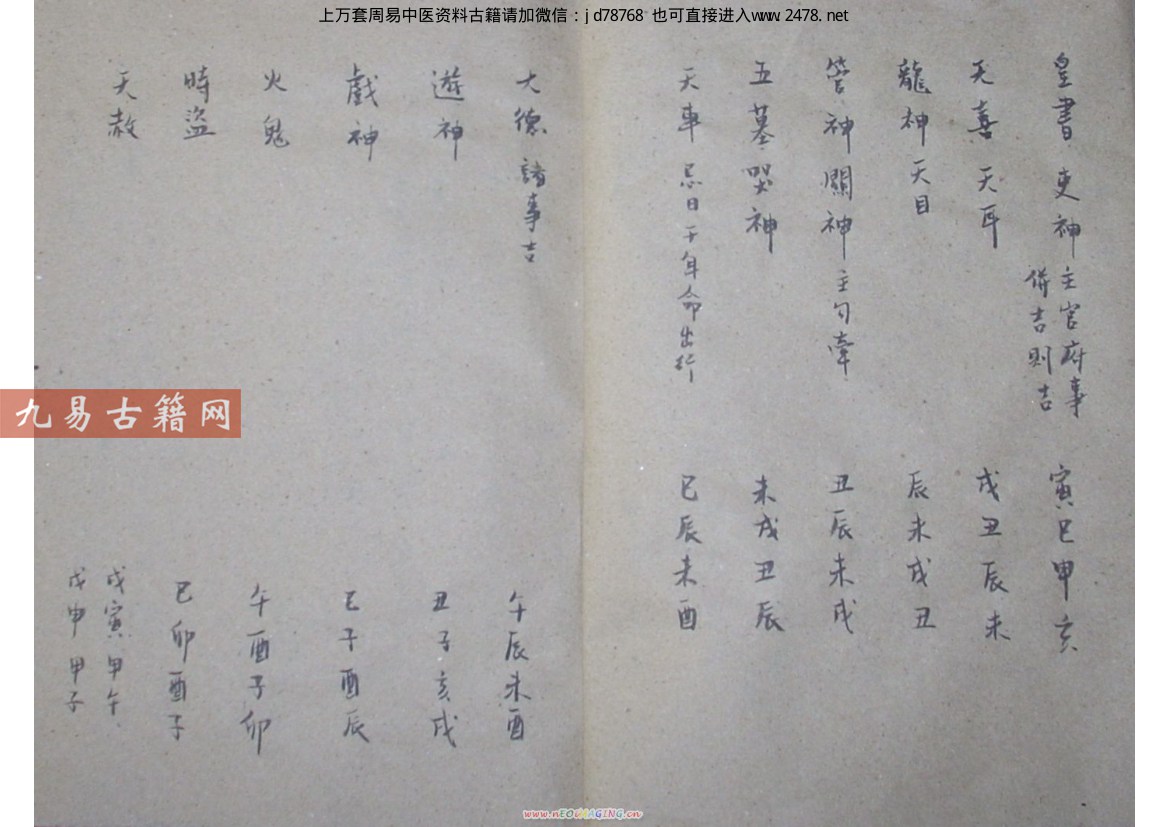 上万套周易中医资料古籍请加微信：jd78768 也可直接进入www.2478.net
皇書 吏神 主官府事 併吉則吉 寅巳申亥
天喜 天耳 戌丑辰未
龍神 天目 辰未戌丑
管神 關神 主勾牽 丑辰未戌
五墓 哭神 未戌丑辰
天車 忌日干年命出行 巳辰未酉
大德 諸事吉 午辰未酉
遊神 丑子亥戌
戲神 巳子酉辰
火鬼 午酉子卯
時盜 巳卯酉子
天赦 戊寅甲午 戊申甲子
九易古籍网
www.nEOiMAGING.cn